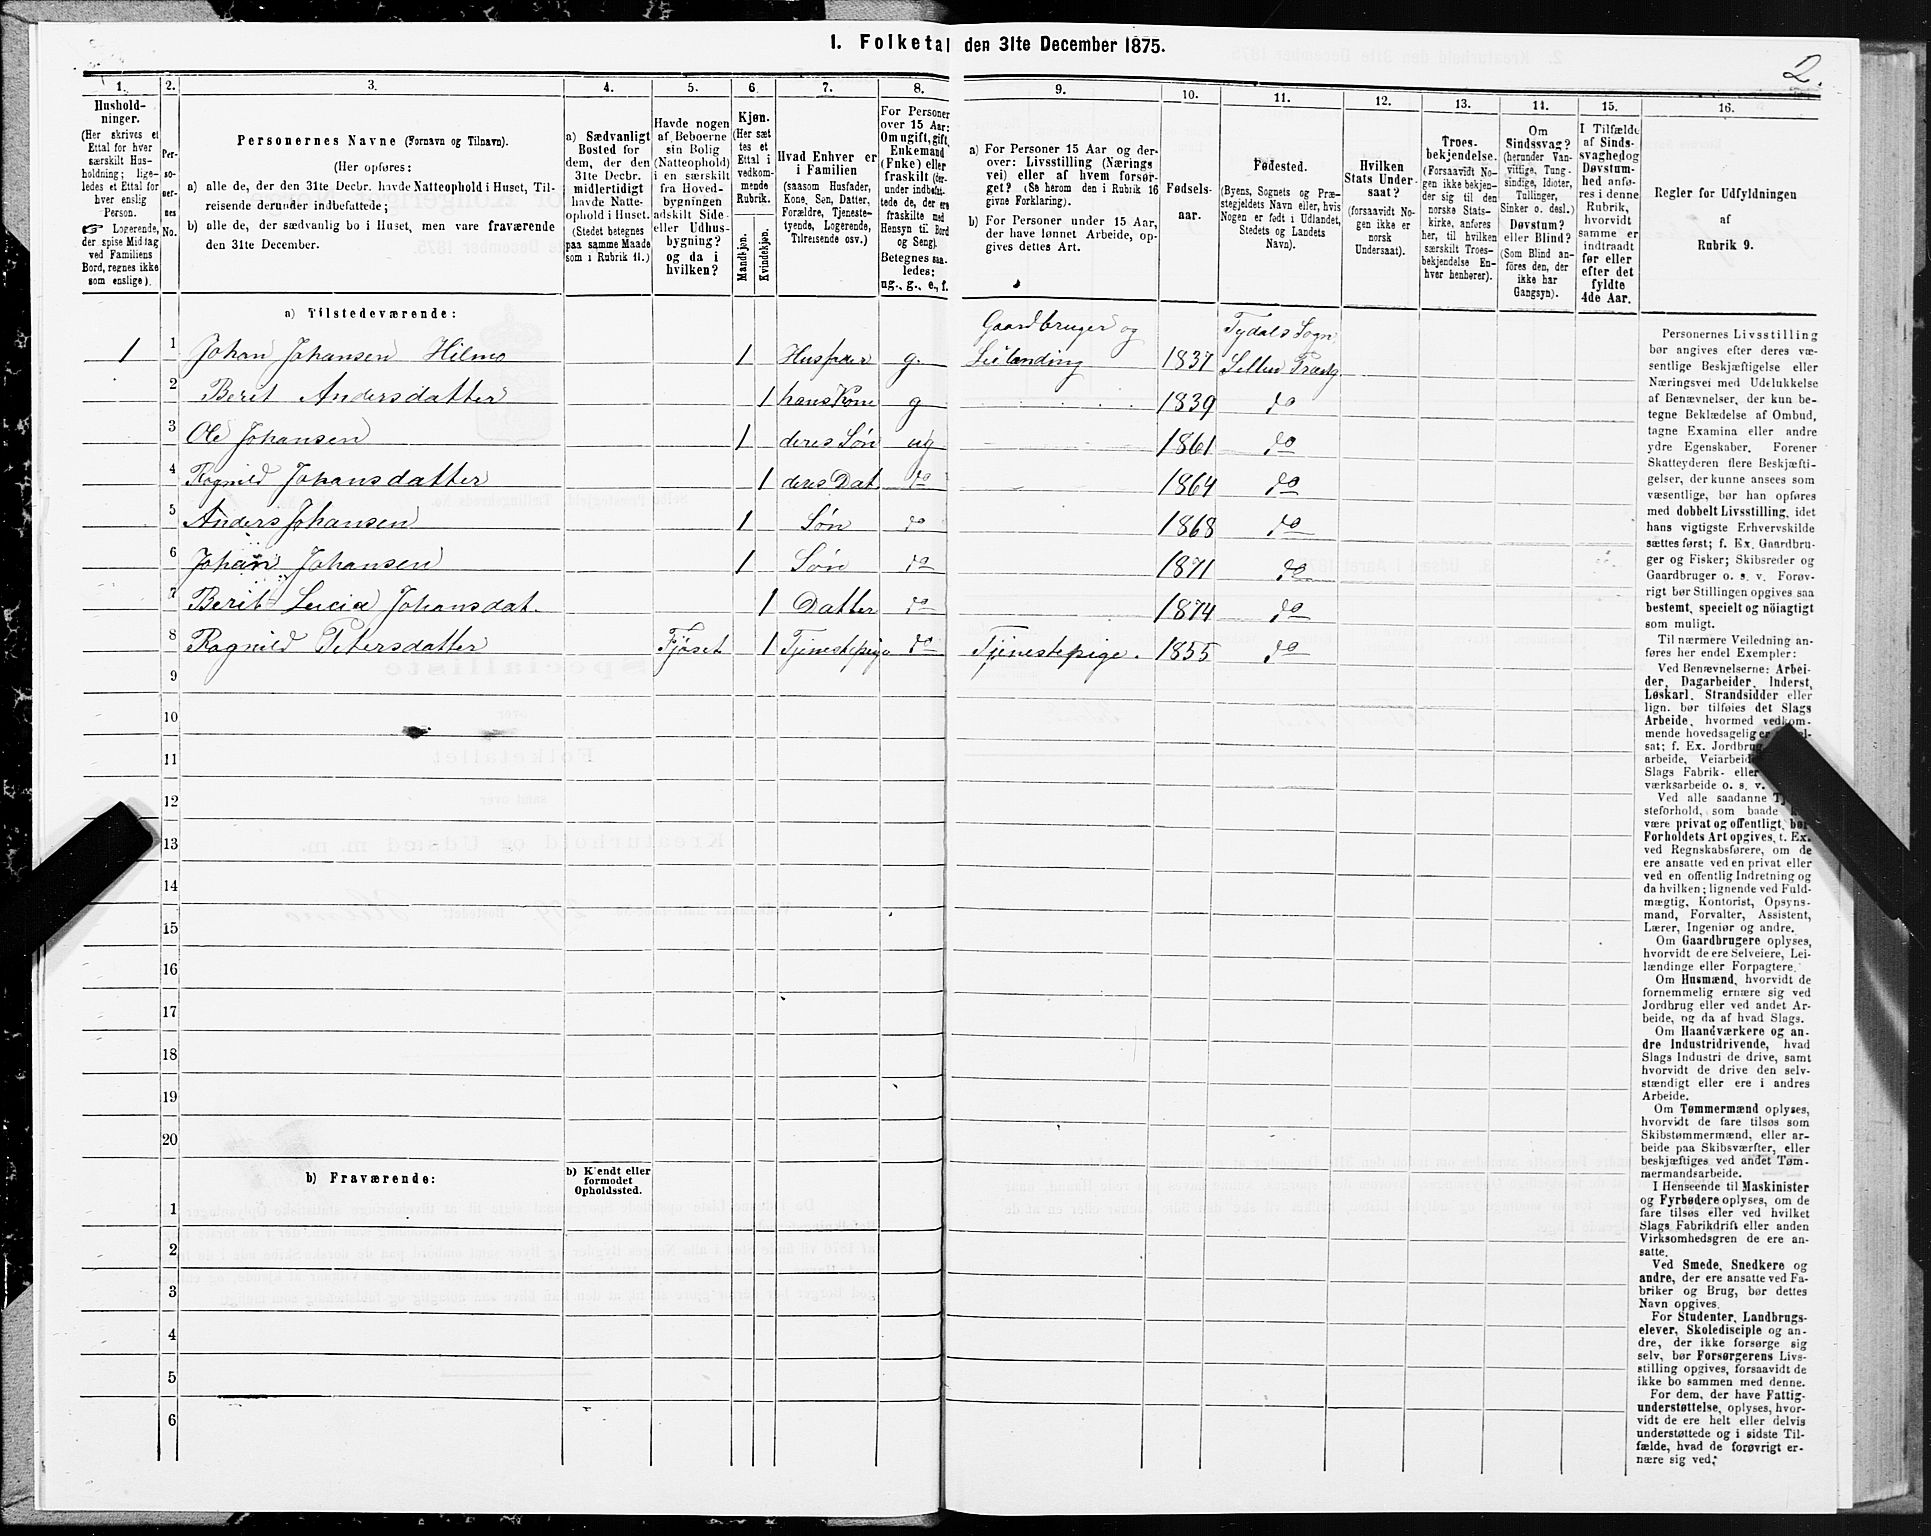 1. Folketal den 31te December 1875.
2.
1.
Hushold-
ninger.
(Her skrives et
Ettal for hver
særskilt Hus-
holdning; lige-
ledes et Ettal for
hver enslig
Person.
☞ Logerende,
der spise Middag
ved Familiens
Bord, regnes ikke
som enslige).
2.
Per-
so-
ner-
nes
No.
3.
Personernes Navne (Fornavn og Tilnavn).
(Her opføres:
a) alle de, der den 31te Decbr. havde Natteophold i Huset, Til-
reisende derunder indbefattede;
b) alle de, der sædvanlig bo i Huset, men vare fraværende
den 31te December.
4.
a) Sædvanligt
Bosted for
dem, der den
31te Decbr.
midlertidigt
havde Natte-
ophold i Huset.
(Stedet betegnes
paa samme Maade
som i Rubrik 11.)
5.
Havde nogen
af Beboerne
sin Bolig
(Natteophold)
i en særskilt
fra Hoved-
bygningen
adskilt Side-
eller Udhus-
bygning?
og da i
hvilken?
6.
Kjøn.
(Her sæt-
tes et
Ettal i
vedkom-
mende
Rubrik.
Mandkjøn.
Kvindekjøn.
7.
Hvad Enhver er
i Familien
(saasom Husfader,
Kone, Søn, Datter,
Forældre, Tjeneste-
tyende, Logerende,
Tilreisende osv.)
8.
For Personer
over 15 Aar:
Om ugift, gift,
Enkemand
(Enke) eller
fraskilt (der-
under indbefat-
tede de, der ere
fraskilte med
Hensyn til Bord
og Seng).
Betegnes saa-
ledes:
ug., g., e., f.
9.
a) For Personer 15 Aar og der-
over: Livsstilling (Nærings
vei) eller af hvem forsør-
get? (Se herom den i Rubrik 16
givne Forklaring).
b) For Personer under 15 Aar,
der have lønnet Arbeide, op-
gives dettes Art.
10.
Fødsels-
aar.
11.
Fødested.
(Byens, Sognets og Præ-
stegjeldets Navn eller, hvis
Nogen er født i Udlandet,
Stedets og Landets
Navn).
12.
Hvilken
Stats Under-
saat?
(forsaavidt No-
gen ikke er
norsk
Undersaat).
13.
Troes-
bekjendelse.
(Forsaavidt No-
gen ikke bekjen-
der sig til den
norske Stats-
kirke, anføres
her, til hvilken
særskilt Troes-
bekjendelse En-
hver henhører).
14.
Om
Sindssvag?
(herunder Van-
vittige, Tung-
sindige, Idioter,
Tullinger,
Sinker o. desl.)
Døvstum?
eller Blind?
(Som Blind an-
føres den, der
ikke har
Gangsyn).
15.
I Tilfælde
af Sinds-
svaghed og
Døvstum-
hed anfø-
res i denne
Rubrik,
hvorvidt
samme er
indtraadt
før eller
efter det
fyldte
4de Aar.
16.
Regler for Udfyldningen
af
Rubrik 9.
a) Tilstedeværende:
Gaardbruger og Tydals Sogn
1 1 Johan Johansen Hilmo 1 Husfader g. Leilænding 1837 Selbu Præstg
2 Berit Andersdatter 1 hans Kone g 1839 do
3 Ole Johansen 1 deres Søn ug 1861 do
4 Ragnild Johansdatter 1 deres Dat. do 1864 do
5 Anders Johansen 1 Søn do 1868 do
6 Johan Johansen 1 Søn do 1871 do
7 Berit Lucia Johansdat. 1 Datter do 1874 do
8 Ragnild Petersdatter Fjøset 1 Tjenestepige do Tjenestepige. 1855 do
9
10
11
12
13
14
15
16
17
18
19
20
b) Fraværende:
b) Kjendt eller
formodet
Opholdssted.
1
2
3
4
5
6
Personernes Livsstilling
bør angives efter deres væ-
sentlige Beskjæftigelse eller
Næringsvei med Udelukkelse
af Benævnelser, der kun be-
tegne Beklædelse af Ombud,
tagne Examina eller andre
ydre Egenskaber. Forener
Skatteyderen flere Beskjæfti-
gelser, der kunne ansees som
væsentlige, bør han opføres
med dobbelt Livsstilling, idet
hans vigtigste Erhvervskilde
sættes først; f. Ex. Gaardbru-
ger og Fisker; Skibsreder og
Gaardbruger o. s. v. Forøv-
rigt bør Stillingen opgives saa
bestemt, specielt og nöiagtigt
som muligt.
Til nærmere Veiledning an-
føres her endel Exempler:
Ved Benævnelserne: Arbei-
der, Dagarbeider, Inderst,
Løskarl, Strandsidder eller
lign. bør tilføies det Slags
Arbeide, hvormed vedkom-
mende hovedsagelig er
sat; f. Ex. Jordbrug
arbeide, Veiarbeid
Slags Fabrik- eller
værksarbeide o. s. v.
Ved alle saadanne
steforhold, som baade
være privat og offentligt, bør
Forholdets Art opgives, t. Ex.
ved Regnskabsførere, om de
ere ansatte ved en privat eller
ved en offentlig Indretning og
da hvilken; lignende ved Fuld-
mægtig, Kontorist, Opsyns-
mand, Forvalter, Assistent,
Lærer, Ingeniør og andre.
Om Gaardbrugere oplyses,
hvorvidt de ere Selveiere, Lei-
lændinge eller Forpagtere.
Om Husmænd, hvorvidt de
fornemmelig ernære sig ved
Jordbrug eller ved andet Ar-
beide, og da af hvad Slags.
Om Haandværkere og an-
dre Industridrivende, hvad
Slags Industri de drive, samt
hvorvidt de drive den selv-
stændigt eller ere i andres
Arbeide.
Om Tømmermænd oplyses,
hvorvidt de fare tilsøs som
Skibstømmermænd, eller ar-
beide paa Skibsværfter, eller
beskjæftiges ved andet Tøm-
mermandsarbeide.
I Henseende til Maskinister
og Fyrbødere oplyses, om de
fare tilsøs eller ved hvilket
Slags Fabrikdrift eller anden
Virksomhedsgren de ere an-
satte.
Ved Smede, Snedkere og
andre, der ere ansatte ved Fa-
briker og Brug, bør dettes
Navn opgives.
For Studenter, Landbrugs-
elever, Skoledisciple og an-
dre, der ikke forsørge sig
selv, bør Forsørgerens Livs-
stilling opgives, forsaavidt de
ikke bo sammen med denne.
For dem, der have Fattig-
understøttelse, oplyses, hvor-
vidt de ere helt eller delvis
understøttede og i sidste Til-
fælde, hvad de forøvrigt er-
nære sig ved.